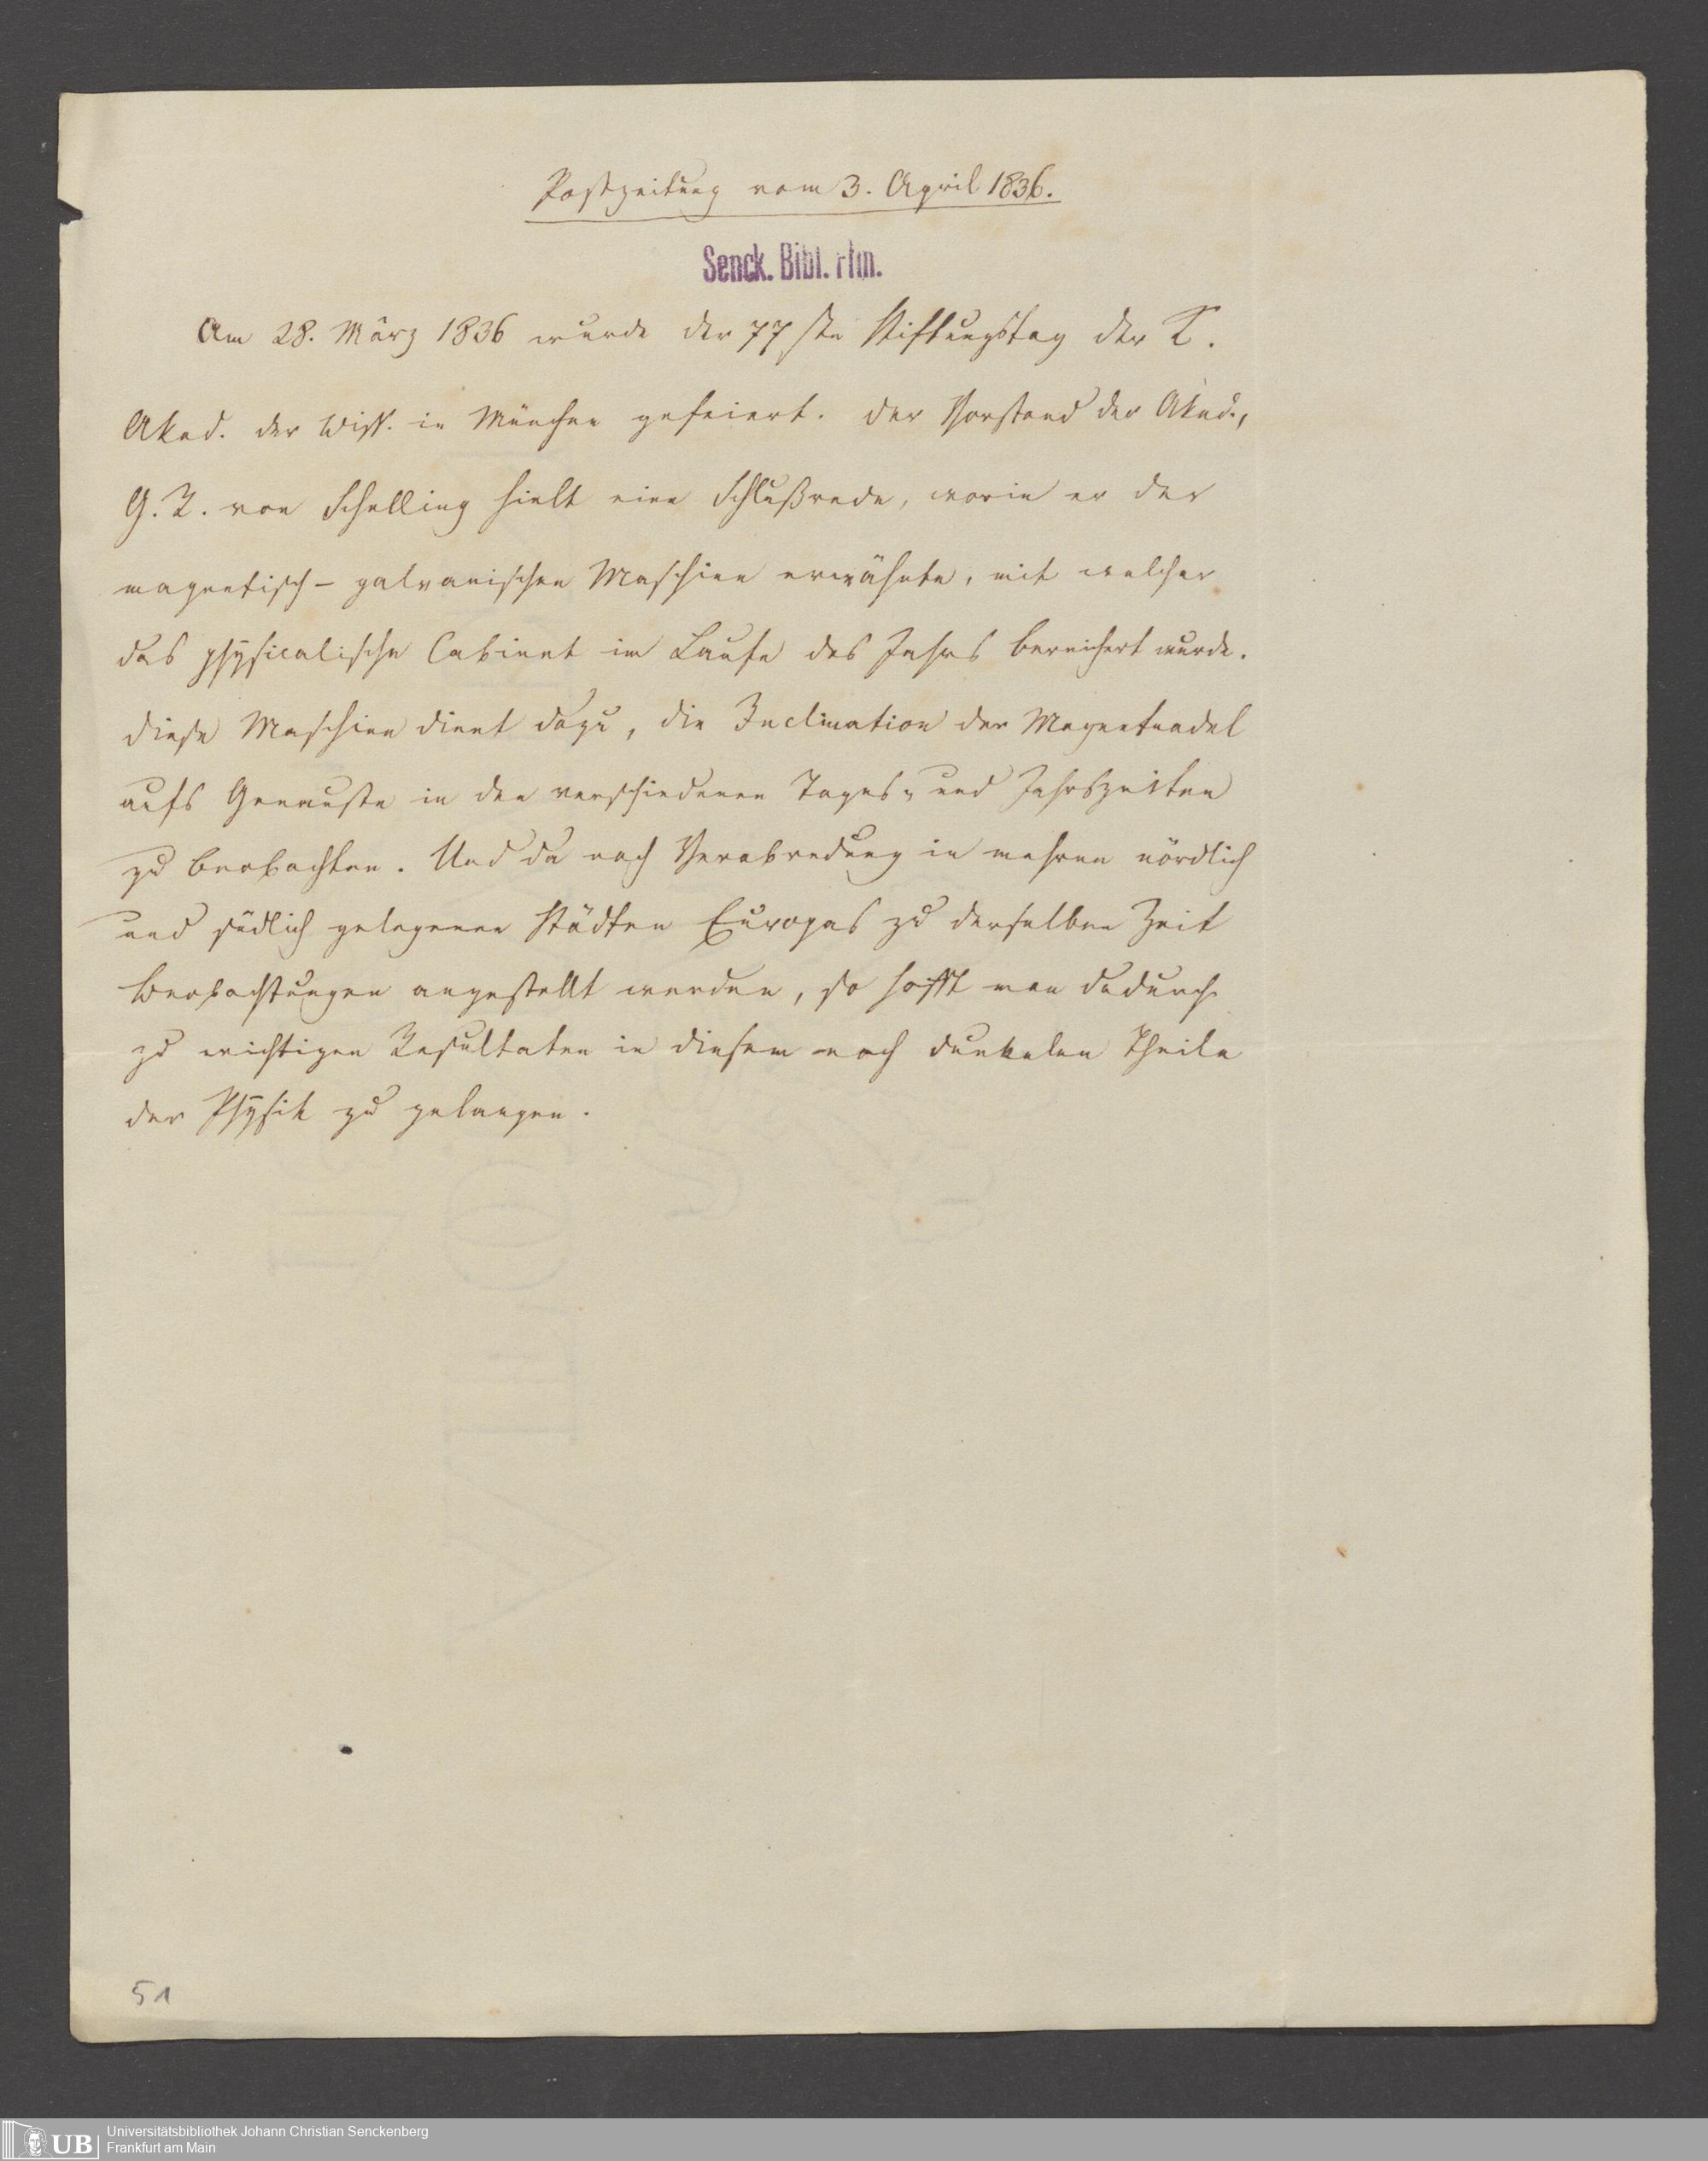 Postzeitung vom 3. April 1836.
Senck. Bibl. Ffm.
Am 28. März 1836 wurde der 77ste Stiftungstag der K.
Akad. der Wiss. in München gefeiert. Der Vorstand der Akad.,
G. R. von Schelling hielt eine Schlußrede, worin er der
magnetisch-galvanischen Maschine erwähnte, mit welcher
das physicalische Cabinet im Laufe des Jahrs bereichert wurde.
Diese Maschine dient dazu, die Inclination der Magnetnadel
aufs Genauste in den verschiedenen Tages- und Jahrszeiten
zu beobachten. Und da nach Verabredung in mehren nördlich
und südlich gelegenen Städten Europas zu derselben Zeit
Beobachtungen angestellt werden, so hofft man dadurch
zu wichtigen Resultaten in diesem noch dunkelen Theile
der Physik zu gelangen.
51
UB
Universitätsbibliothek Johann Christian Senckenberg
Frankfurt am Main